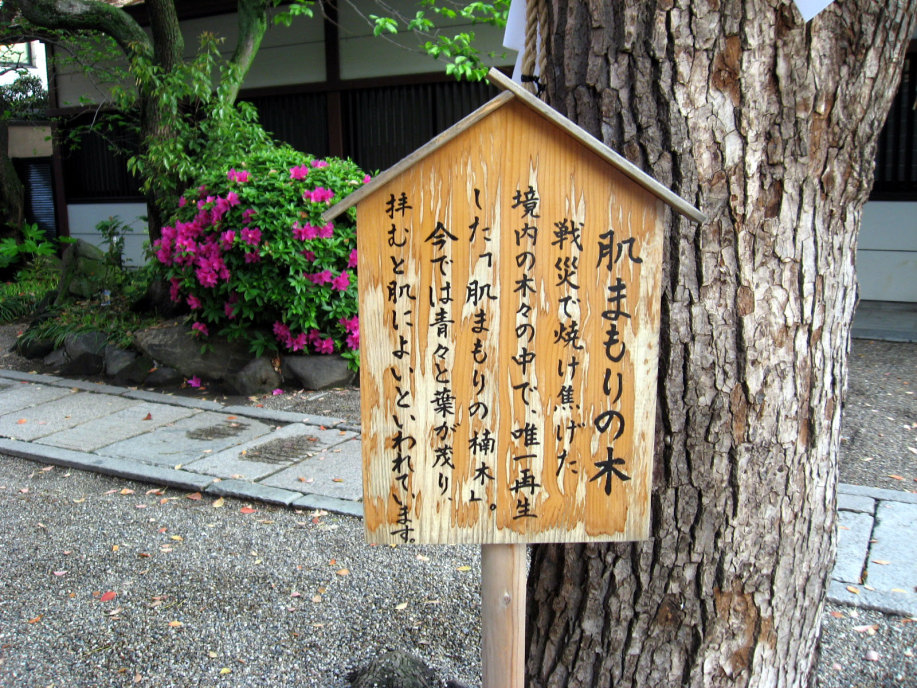 肌まもりの木
戦災で焼け焦げた
境内の木々の中で、唯一再生
した「肌まもりの楠木」。
今では青々と葉が茂り
拝むと肌によいといわれています。